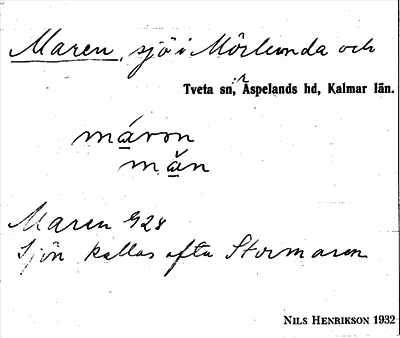 Maren, sjö i Mörlunda och
Tveta sn, Aspelands hd, Kalmar län.
máron
mǎn
Maren G28
Sjön kallas ofta Stormaren
NILS HENRIKSON 1932